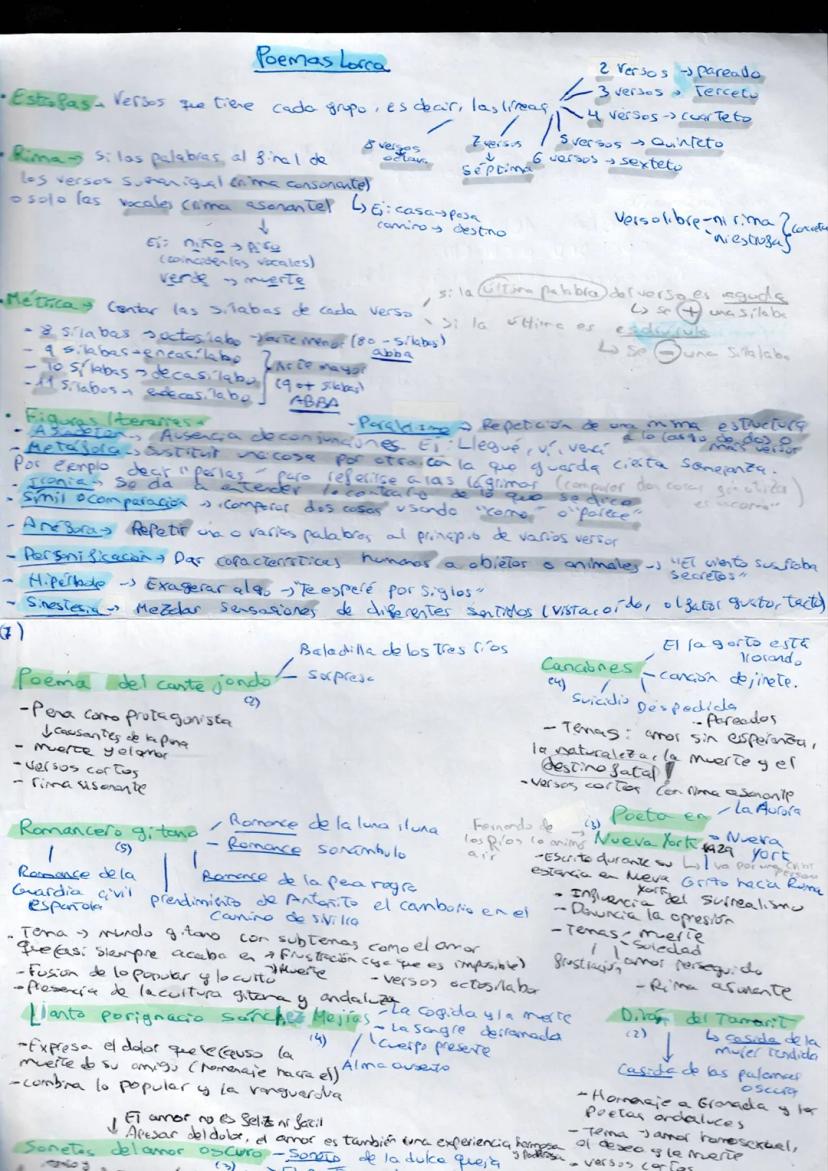 Poemas Lorca
2 versos → pareado
• Estrofas → Versos que tiene cada grupo, es decir, las líneas
3 versos → Terceto
4 versos → cuarteto
5 versos → Quinteto
6 versos → sexteto
7 versos ↓ séptima
8 versos octava
• Rima → Si las palabras al final de
los versos suenan igual (rima consonante)
o solo las vocales (rima asonante)
↳ Ej: casa → pasa
camino → destino
Ej: niño → pito
(coinciden las vocales)
verde → muerte
Verso libre - ni rima
ni estrofa
• Métrica → Contar las sílabas de cada verso
si la última palabra del verso es aguda
↳ se + una sílaba
si la última es esdrújula
↳ se - una sílaba
- 8 sílabas → octosílabo → arte menor (8 o - sílabas)
abba
- 9 sílabas → eneasílabo
- 10 sílabas → decasílabo
- 11 sílabas → endecasílabo
Arte mayor
(9 o + sílabas)
ABBA
• Figuras literarias →
- Paralelismo → Repetición de una misma estructura
a lo largo de dos o
más versos
- Asíndeton → Ausencia de conjunciones Ej: Llegué, vi, vencí
- Metáfora → Sustituir una cosa por otra con la que guarda cierta semejanza.
Por ejemplo decir "perlas" para referirse a las lágrimas (comparar dos cosas sin utiliza
es "como")
- Ironía → Se da a entender lo contrario de lo que se dice
- Símil o comparación → comparar dos cosas usando "como" o "parece"
- Anáfora → Repetir una o varias palabras al principio de varios versos
- Personificación → Dar características humanas a objetos o animales → "El viento susurraba
secretos"
- Hipérbole → Exagerar algo → "Te esperé por siglos"
- Sinestesia → Mezclar sensaciones de diferentes sentidos (vista, oído, olfato, gusto, tacto)
7)
Poema del cante jondo
(2)
Baladilla de los tres ríos
Sorpresa
- Pena como protagonista
↓ causantes de la pena
- muerte y el amor
- versos cortos
- rima asonante
Canciones
(4)
El lagarto está
llorando
canción de jinete.
Suicidio
Despedida
- Pareados
- Temas: amor sin esperanza,
la naturaleza, la muerte y el
destino fatal
- versos cortos con rima asonante
Romancero gitano
(5)
Romance de la luna, luna
Romance sonámbulo
Romance de la pena negra
Romance de la
Guardia civil
española
prendimiento de Antoñito el camborio en el
camino de sevilla
• Tema → mundo gitano con subtemas como el amor
que casi siempre acaba en → frustración (ya que es imposible)
→ Muerte
- Fusión de lo popular y lo culto
- versos octosílabos
- Presencia de la cultura gitana y andaluza
Fernando de
los Ríos lo animó
a ir
Poeta en
Nueva York
(3)
La Aurora
Nueva
York
Grito hacia Roma
- Escrito durante su
estancia en Nueva
York
- Influencia del surrealismo
- Denuncia la opresión
- Temas → muerte
soledad
frustración
amor perseguido
- Rima asonante
Llanto por Ignacio Sánchez Mejías
(4)
La cogida y la muerte
La sangre derramada
Cuerpo presente
Alma ausente
- Expresa el dolor que le causó la
muerte de su amigo (homenaje hacia el)
- combina lo popular y la vanguardia
Diván del Tamarit
(2)
↳ casida de la
mujer tendida
Casida de las palomas
oscuras
- Homenaje a Granada y los
poetas andaluces
- Tema → amor homosexual,
el deseo y la muerte
- versos cortos
↓ El amor no es feliz ni fácil
Apesar del dolor, el amor es también una experiencia hermosa
y poderosa
Sonetos del amor oscuro - Soneto de la dulce queja